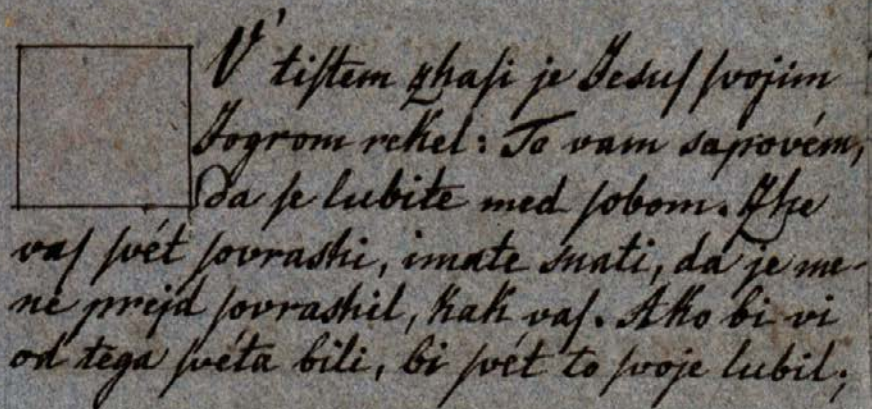 V' tiſtem zhaſi je Jesuſ ſvojim
Jogrom rekel: To vam sapovém,
da ſe lubite med ſobom. Zhe
vaſ ſvét ſovrashi, imate snati, da je me-
ne prejd ſovrashil, kak vaſ. Ako bi vi
od tega ſvéta bili, bi ſvét to ſvoje lubil;